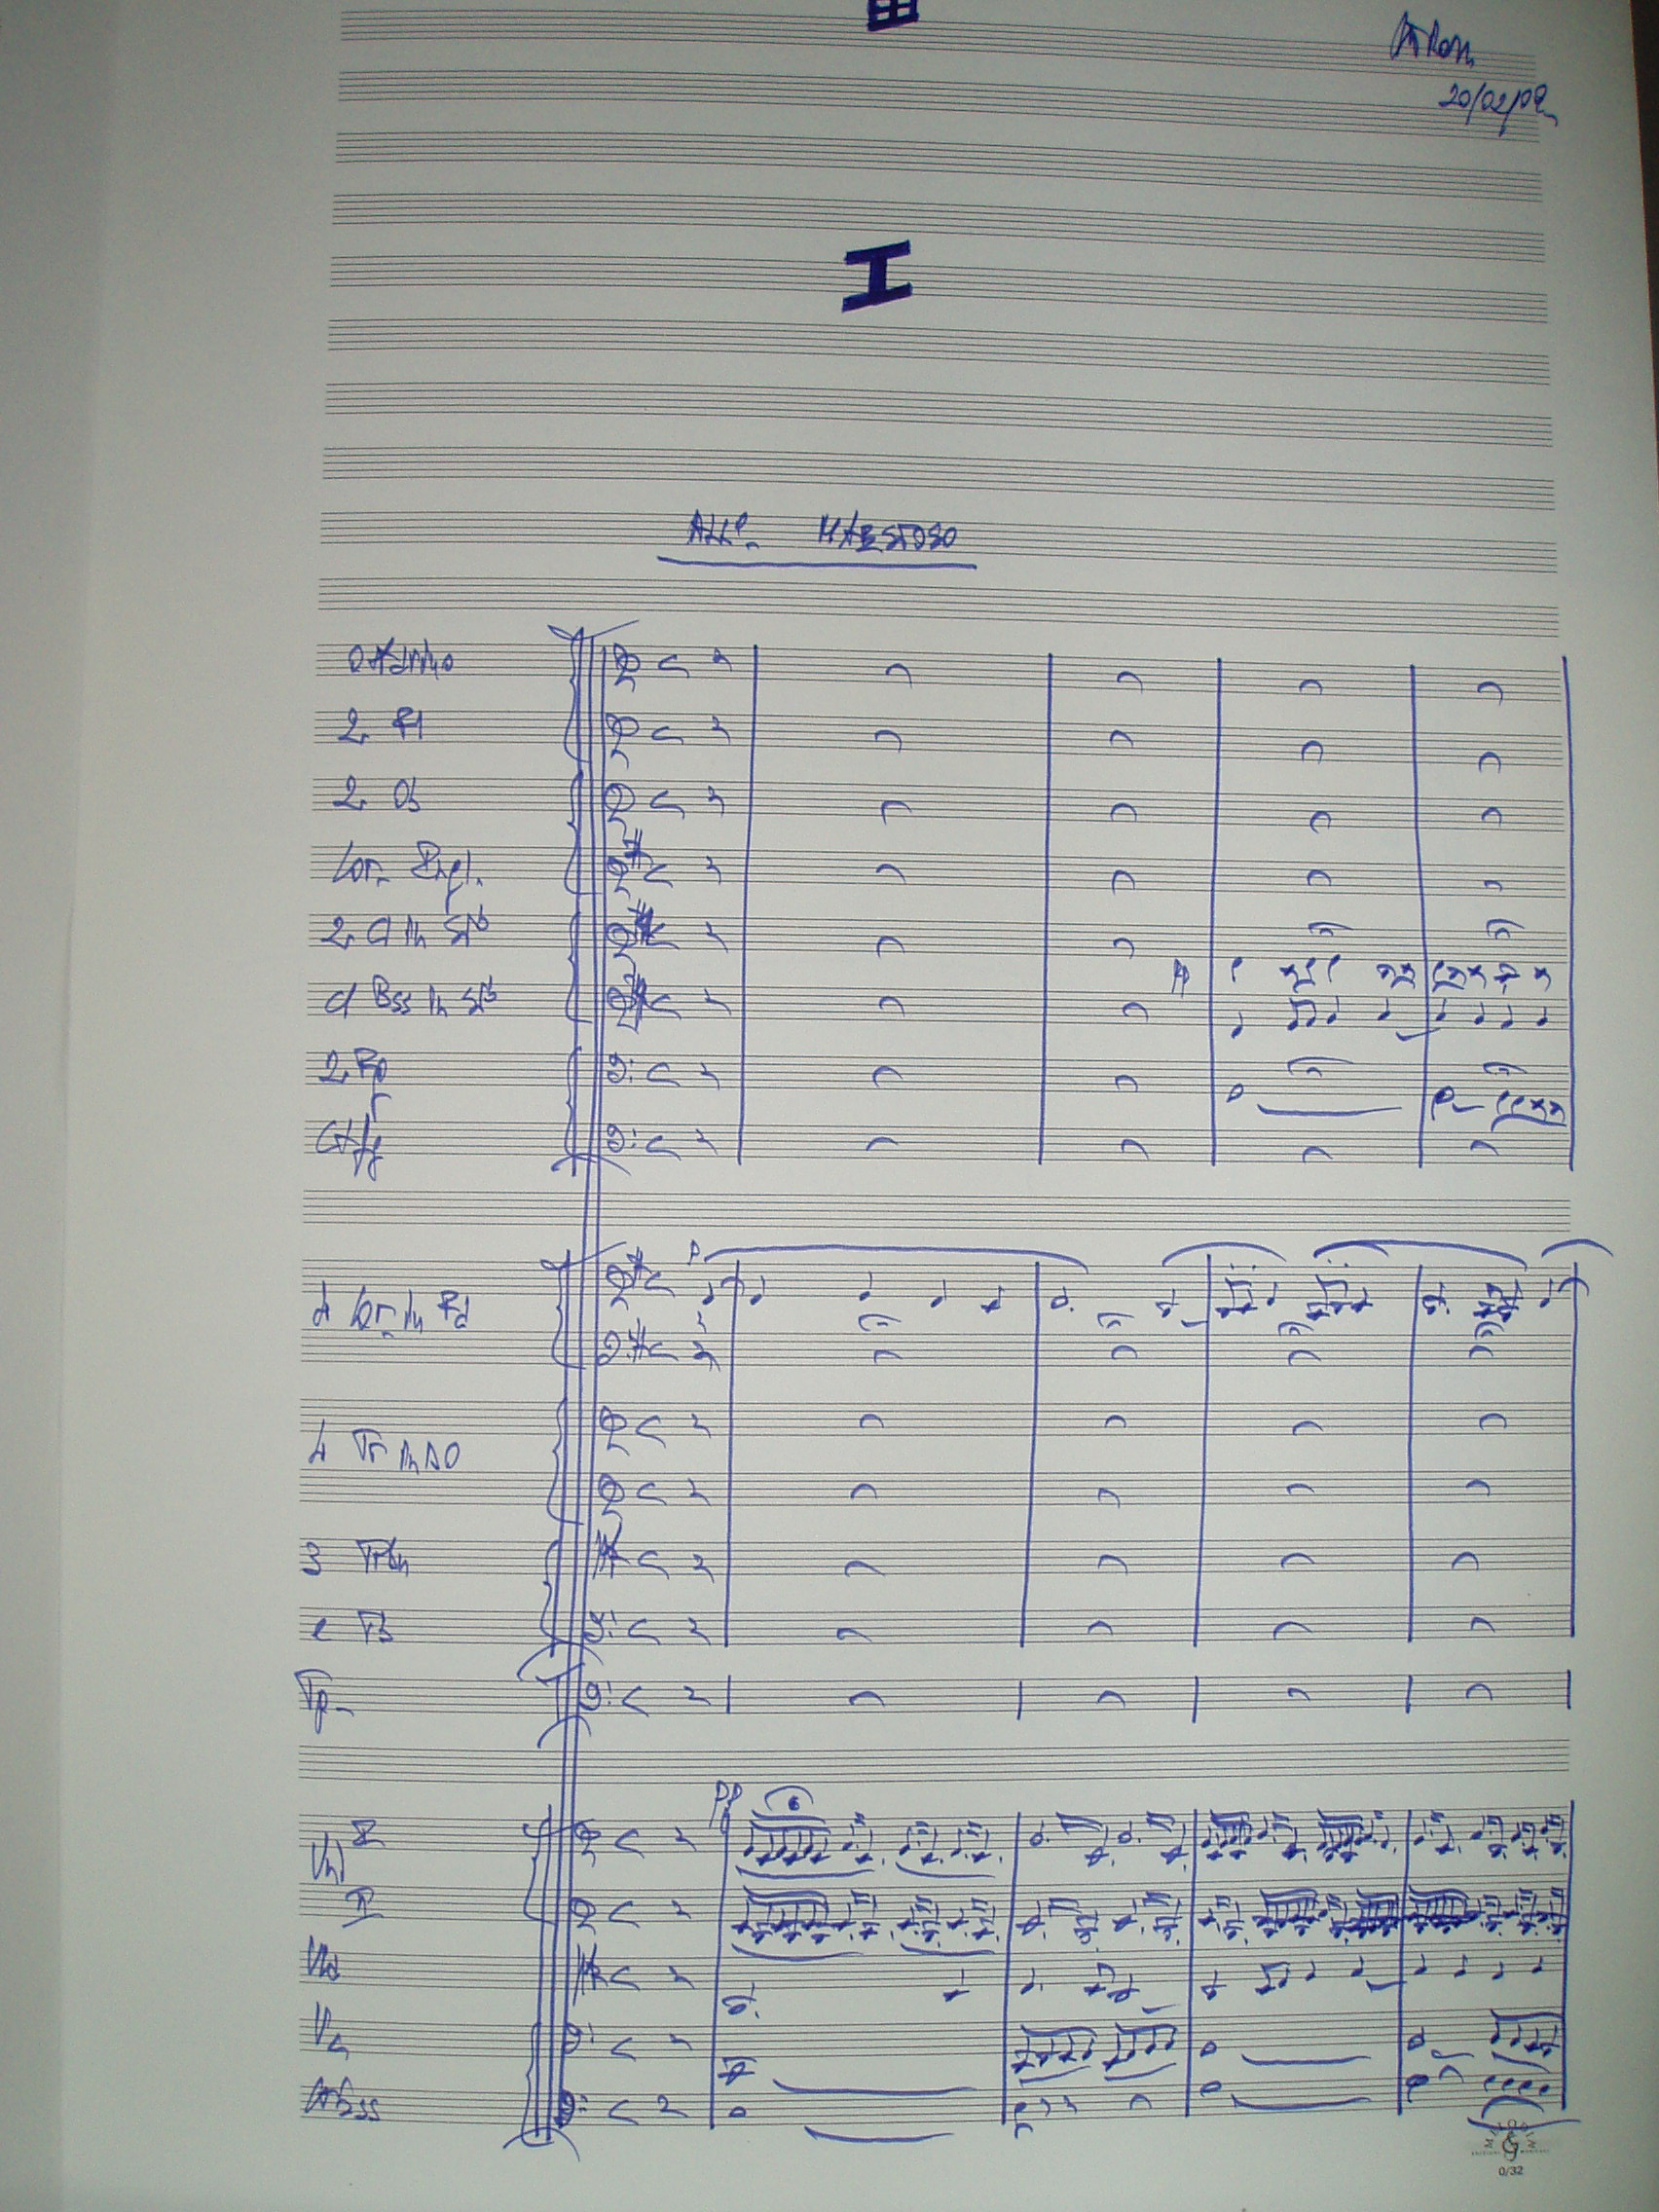 20/02/02
I
ALL.o MAESTOSO
Ottavino
2 Fl
2 Ob
Cor. Ingl.
2 Cl in Sib
Cl Bss in Sib
2 Fg
Ctfg
p
p
4 Cor. in Fa
4 Tr in DO
3 Trbn
e Tb
Tp.
pp
6
Vnl
I
II
Vla
Vc
Ctbss
0/32